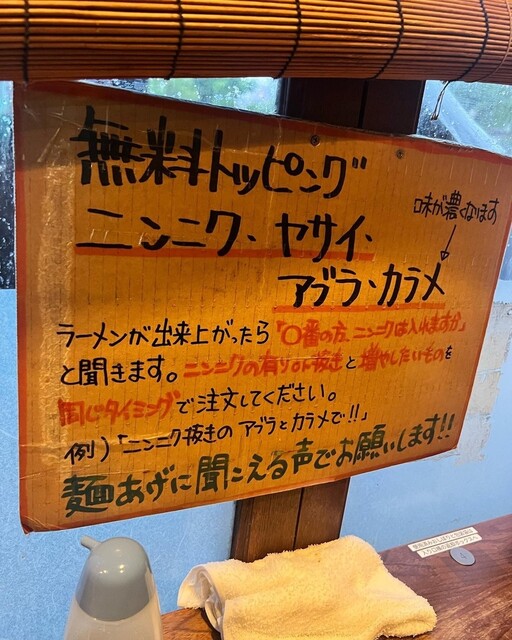 無料トッピング
ニンニク、ヤサイ、
味が濃くなります
アブラ、カラメ
ラーメンが出来上がったら「〇番の方、ニンニクは入れますか」
と聞きます。ニンニクの有りor抜きと増やしたいものを
同じタイミングで注文してください。
例)「ニンニク抜きのアブラとカラメで!!」
麺あげに聞こえる声でお願いします!!